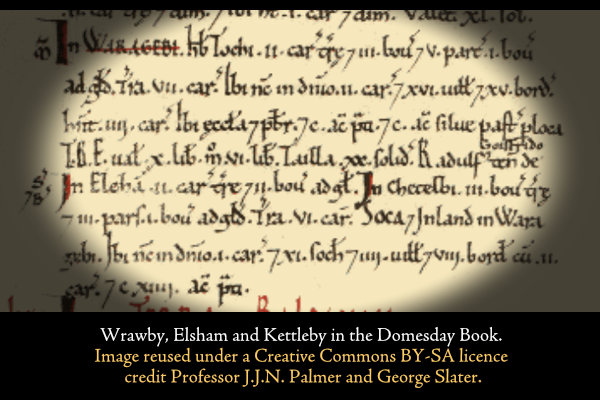 car 7 dim. Valet. xl. sol.
In WARAGEBI. hb̄ Tochi. ii. car̄ t̄re 7 iii. bou 7 v. parte. i. bou
ad gld̄. T̄ra. vii. car̄. Ibi nc̄ in dn̄io. ii. car̄. 7 xvi. uill 7 xv. bord
hn̄t. iiii. car̄. Ibi eccla 7 pbr̄. 7 c. ac̄ p̄ti. 7 c. ac̄ silue past p loca
Goisfrido
T.R.E. ual. x. lib. m̊. vi. lib. Tailla. xx. solid. Radulf ten de
In Elehā. ii. car̄ t̄re 7 ii. bou ad gld. In Chetelbi. iii. bou t̄re
7 iii. pars. i. bou ad gld̄. T̄ra. vi. car̄. Soca 7 Inland in Wara
gebi. Ibi nc̄ in dn̄io. i. car̄. 7 xi. soch 7 iiii. uill 7 viii. bord cū. ii.
car̄. 7 c xiiii. ac̄ p̄ti.
Wrawby, Elsham and Kettleby in the Domesday Book.
Image reused under a Creative Commons BY-SA licence
credit Professor J.J.N. Palmer and George Slater.